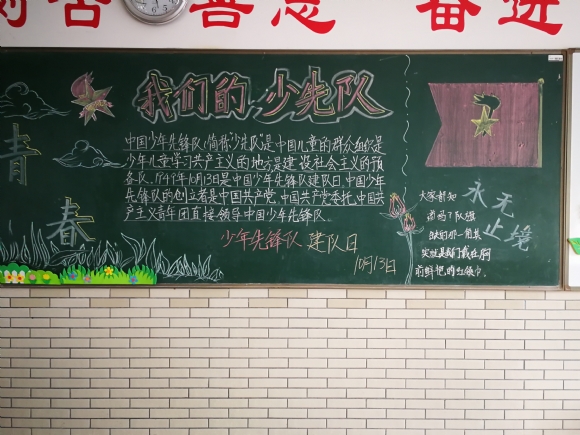 善 奋进
我们的少先队
中国少年先锋队(简称"少先队")是中国儿童的群众组织是
少年儿童学习共产主义的地方是建设社会主义的预
备队,1949年10月13日是中国少年先锋队建队日,中国少年
先锋队的创立者是中国共产党,中国共产党委托中国共
产主义青年团直接领导中国少年先锋队.
少年先锋队建队日
10月13日
青春
永无止境
大家都知